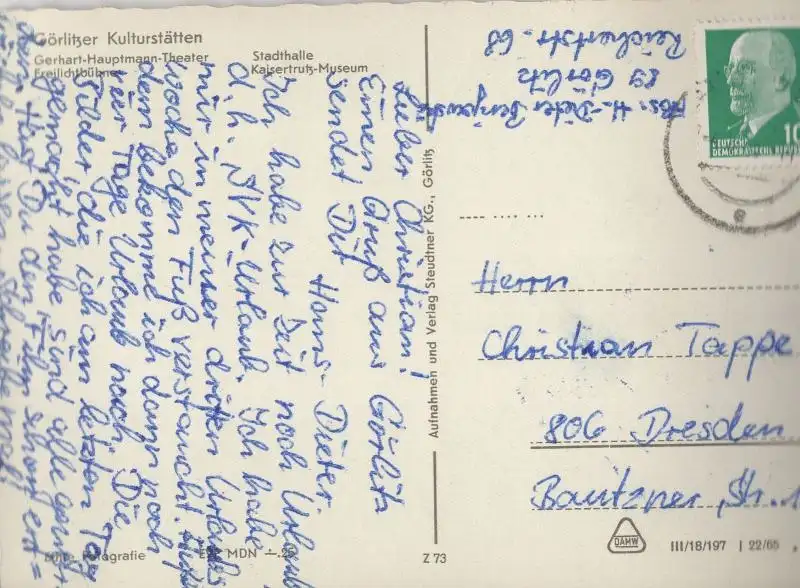 Görlitzer Kulturstätten
Gerhart-Hauptmann-Theater
Stadthalle
Freilichtbühne
Kaisertrutz-Museum
Lieber Christian!
Einen Gruß aus Görlitz
sendet Dir
Hans-Dieter.
Ich habe zur Zeit noch Urlaub
d.h. SVK-Urlaub. Ich habe
mir in meiner dritten Urlaubs
woche den Fuß verstaucht.
dem bekomme ich dann noch
vier Tage Urlaub nach. Die
Bilder die ich am letzten Tag
gemacht habe sind alle
Hast Du den Film schon ent=
Schreibe mal!
Echte Fotografie
MDN –.25
Z 73
Aufnahmen und Verlag Steudtner KG., Görlitz
Abs: H.-Dieter
89 Görlitz
Reichertstr. 68
DEUTSCHE
DEMOKRATISCHE REPUBL
10
Herrn
Christian Tappe
806 Dresden
Bautzner Str. 1
DAMW
III/18/197 | 22/65